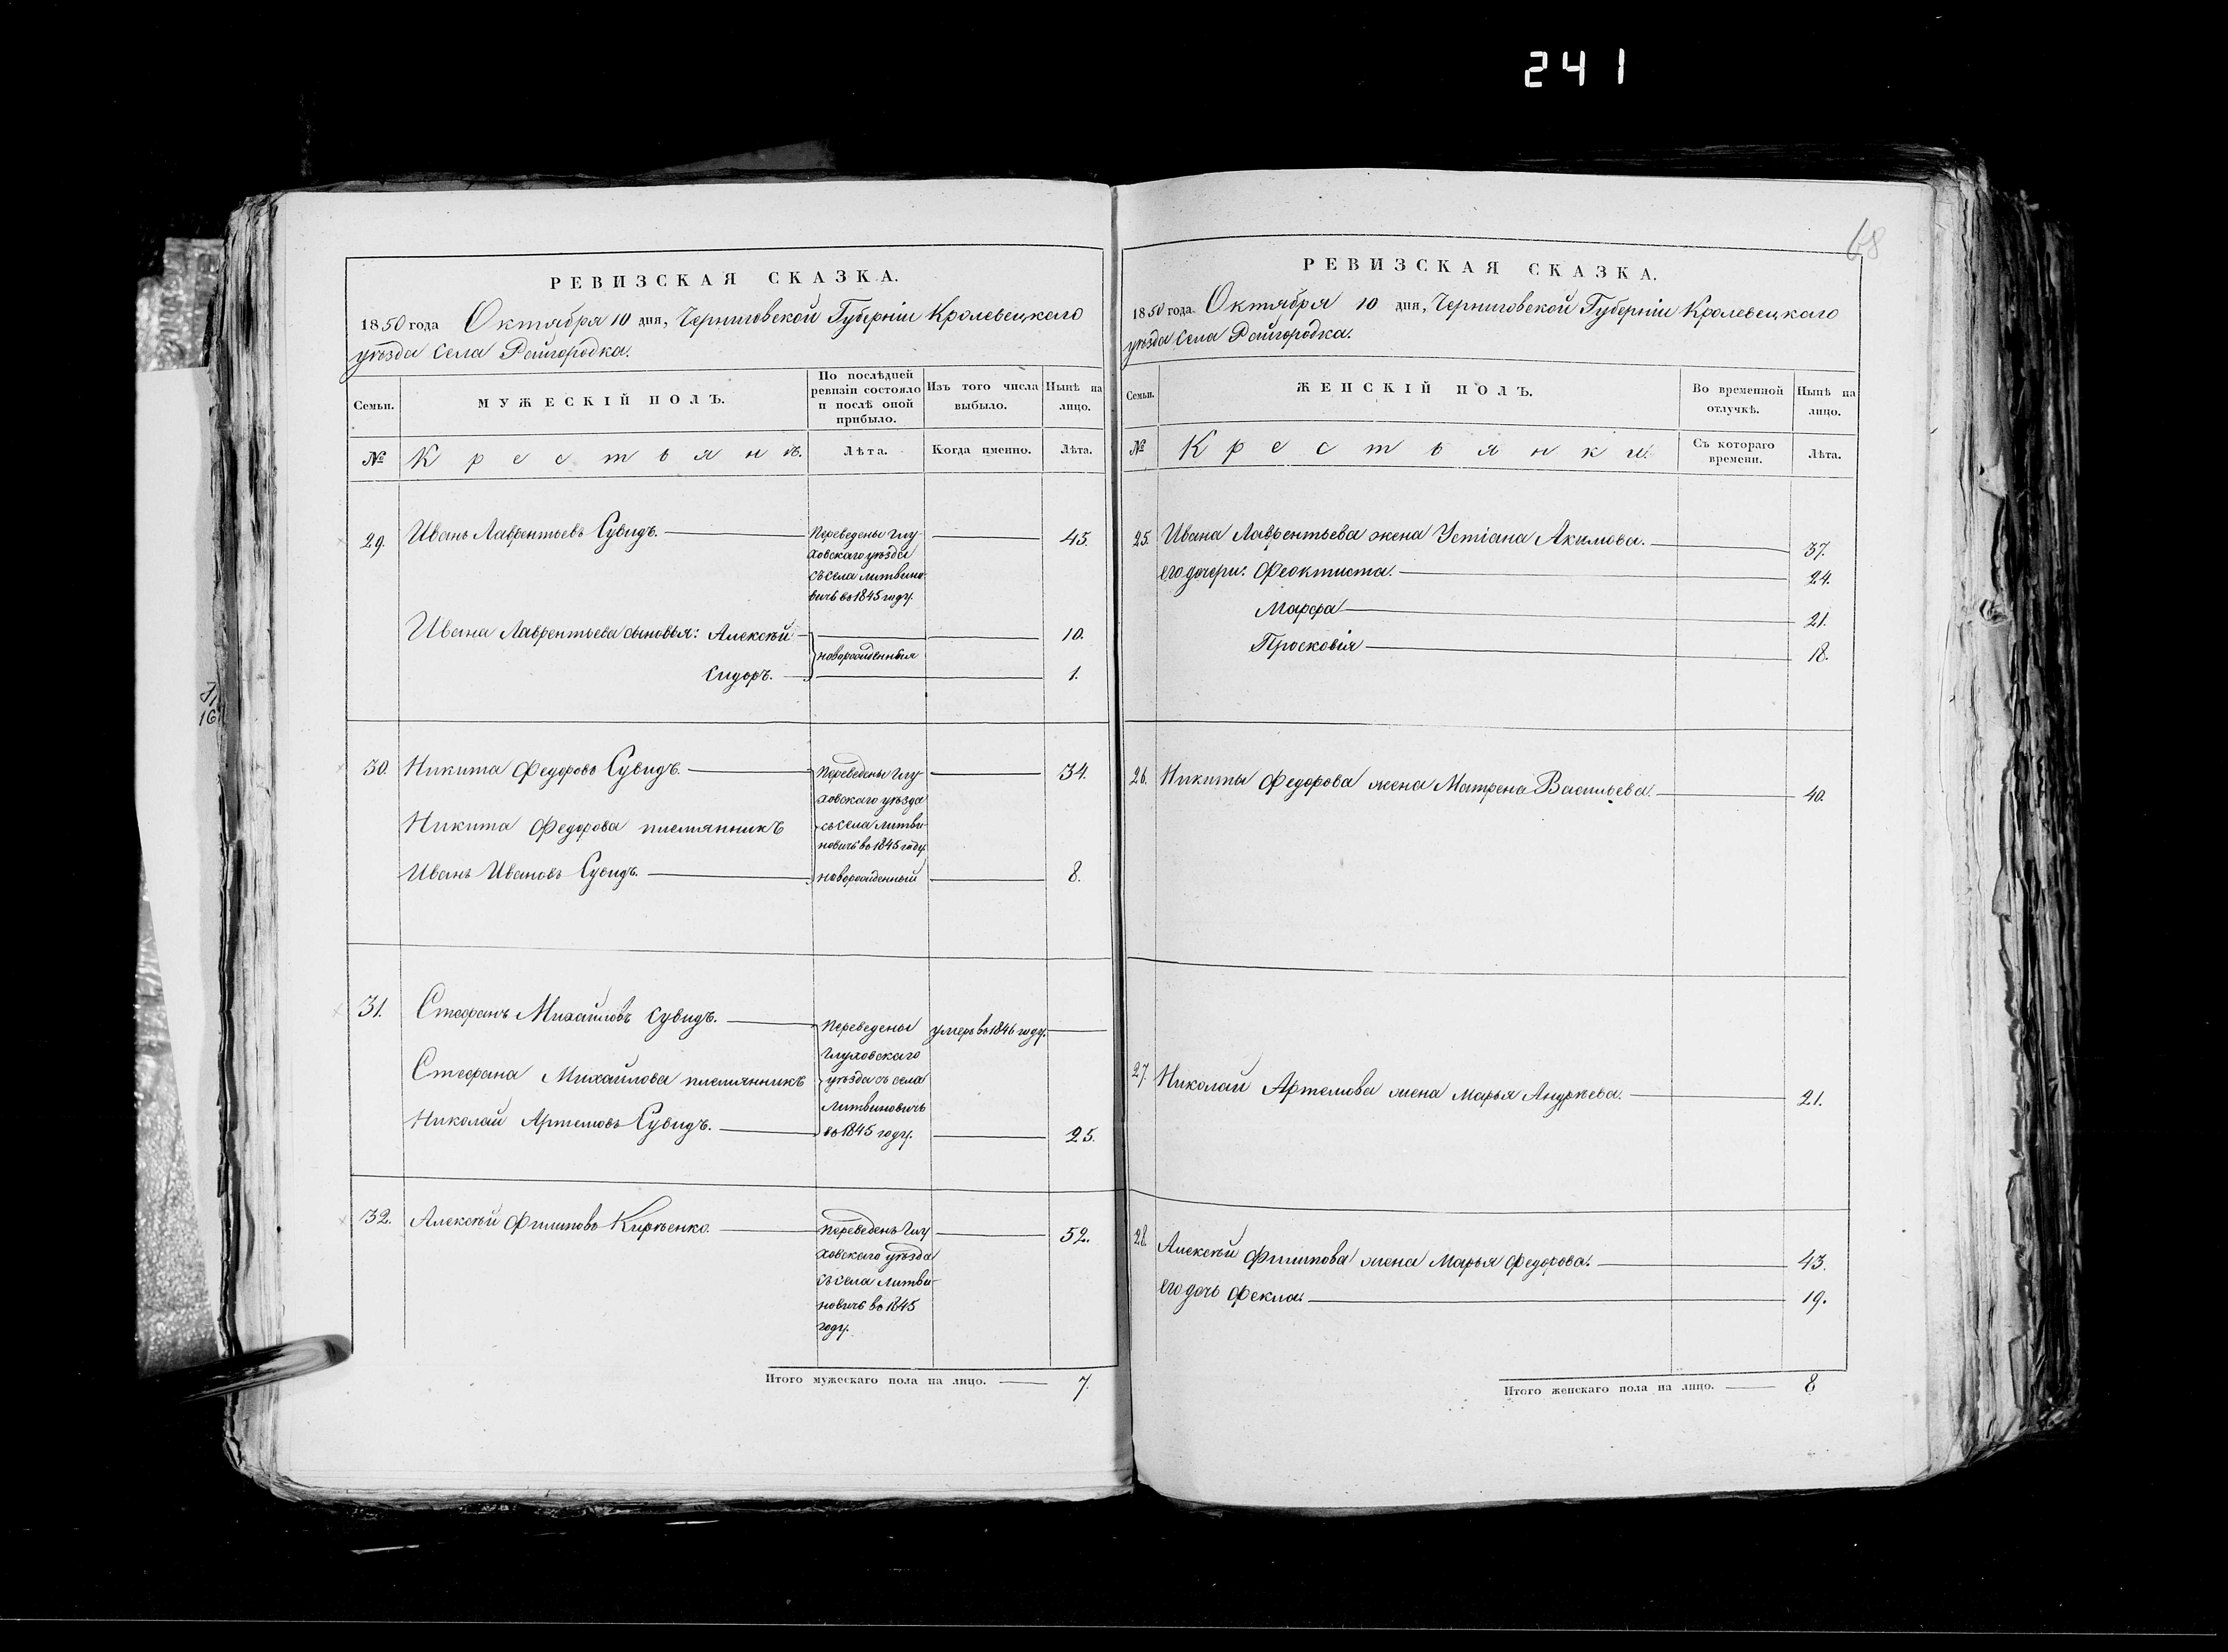 241
68
РЕВИЗСКАЯ СКАЗКА.
1850 года Октября 10 дня, Черниговской Губерніи Кролевецкаго
уѣзда села Райгородка.
Семьи.
МУЖЕСКІЙ ПОЛЪ.
По послѣдней
ревизіи состояло
и послѣ оной
прибыло.
Изъ того числа
выбыло.
Нынѣ на
лицо.
№
Крестьянъ.
Лѣта.
Когда именно.
Лѣта.
29. Иванъ Лаврентьевъ Сувидъ. 45.
Переведены Глу-
ховскаго уѣзда
съ села Литвино-
вичъ въ 1845 году.
Ивана Лаврентьева сыновья: Алексѣй 10.
новорожденныя
Сидоръ. 1.
30. Никита Федоровъ Сувидъ. 34.
Переведены Глу-
ховскаго уѣзда
Никита Федорова племянникъ
съ села Литви-
новичъ въ 1845 году.
Иванъ Ивановъ Сувидъ. новорожденный 8.
31. Стефанъ Михайловъ Сувидъ. Переведены умеръ въ 1846 году.
Глуховскаго
Стефана Михайлова племянникъ уѣзда съ села
Литвиновичъ
Николай Артемовъ Сувидъ. въ 1845 году. 25.
32. Алексѣй Филиповъ Кирѣенко. 52.
Переведенъ Глу-
ховскаго уѣзда
съ села Литви-
новичъ въ 1845
году.
Итого мужескаго пола на лицо. 7.
РЕВИЗСКАЯ СКАЗКА.
1850 года. Октября 10 дня, Черниговской Губерніи Кролевецкаго
уѣзда села Райгородка.
Семьи.
ЖЕНСКІЙ ПОЛЪ.
Во временной
отлучкѣ.
Нынѣ на
лицо.
№
Крестьянки.
Съ котораго
времени.
Лѣта.
25. Ивана Лаврентьева жена Устіана Акимова. 37.
его дочери: Феоктиста. 24.
Марфа 21.
Просковія 18.
26. Никиты Федорова жена Матрена Васильева. 40.
27. Николаи Артемова жена Марья Андрѣева. 21.
28. Алексѣй Филипова жена Марья Федорова. 43.
его дочь Фекла. 19.
Итого женскаго пола на лицо. 8